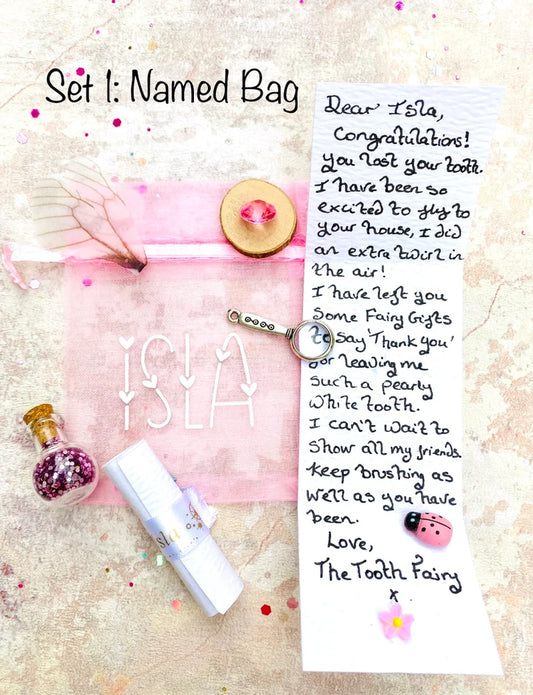 Set 1: Named Bag
Dear Isla,
Congratulations!
you lost your tooth.
I have been so
excited to fly to
your house, I did
an extra twirl in
the air!
I have left you
Some Fairy Gifts
to say 'Thank you'
for leaving me
such a pearly
white tooth.
I can't wait to
show all my friends.
keep brushing as
well as you have
been.
Love,
The Tooth Fairy
x
ISLA